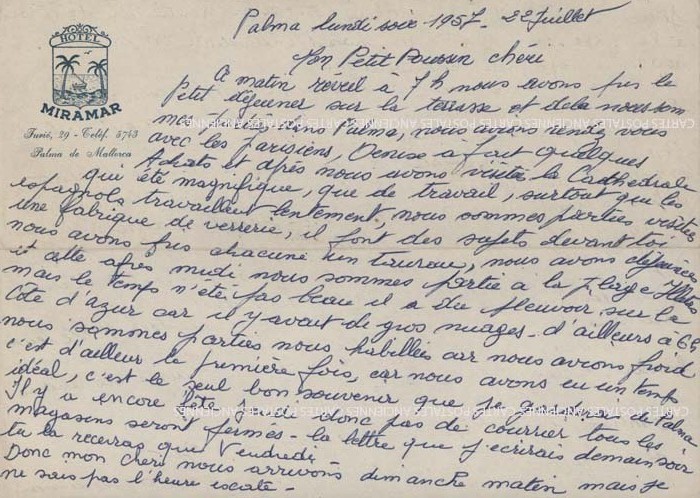 Palma lundi soir 1957 - 22 Juillet
HOTEL
MIRAMAR
Turió, 29 - Telif. 3743
Palma de Mallorca
Mon Petit Poussin chéri
Ce matin réveil à 7h nous avons pris le
Petit déjeuner sur la terrasse et de la nous som
vers Palma, nous avions rendez vous
avec les parisiens, Denise à fait quelques
Achats et après nous avons visitée la Cathédrale
qui été magnifique, que de travail, surtout que les
espagnols travaillent lentement, nous sommes parties visitée
Une fabrique de verrerie, il font des sujets devant toi
nous avons pris chacune un, nous avons déjeunées
et cette après midi nous sommes partie a la plage
mais le temps n'été pas beau il a du pleuvoir sur la
Côte d'azur car il y avait de gros nuages - d'ailleurs à 6h
nous sommes parties nous habillées car nous avions froid
c'est d'ailleur la première fois, car nous avons eu un temps
idéal, c'est le seul bon souvenir que je garderai de Palma
Il y a encore fête donc pas de courrier tous les
magasins seront fermés - la lettre que j'écrirais demain soir
tu la recevras que Vendredi -
Donc mon chéri nous arrivons dimanche matin mais je
ne sais pas l'heure exacte -
CARTES POSTALES ANCIENNES